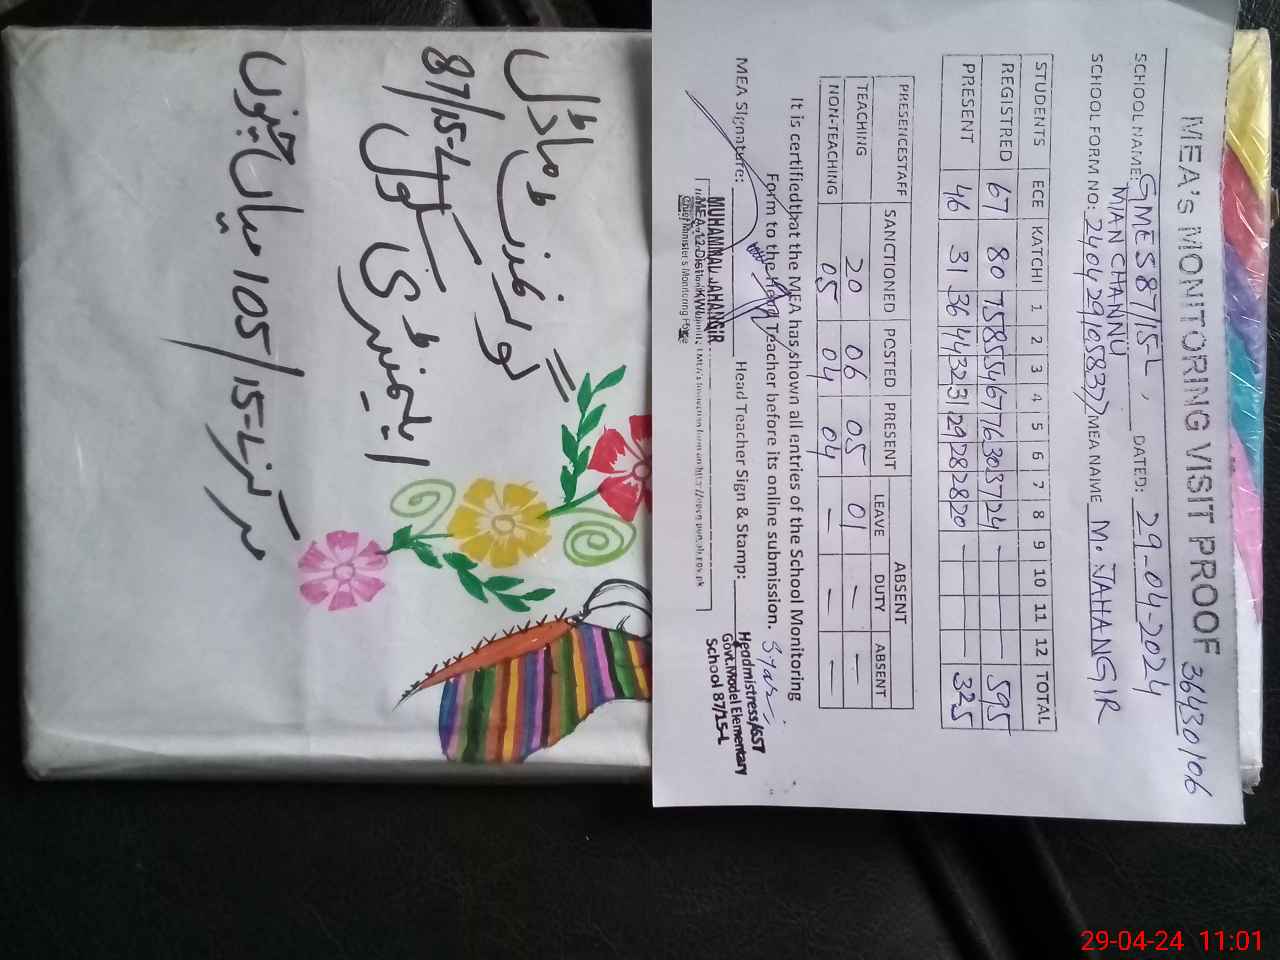 MEA's MONITORING VISIT PROOF 36430106
SCHOOL NAME: GMES 87/15-L, DATED: 29-04-2024
MIAN CHANNU
SCHOOL FORM NO: MEA NAME M. JAHANGIR
STUDENTS ECE KATCHI 1 2 3 4 5 6 7 8 9 10 11 12 TOTAL
REGISTRED 67 80 75 85 54 67 76 30 37 24 — — — — 595
PRESENT 46 31 36 44 32 31 29 28 28 20 — — — — 325
PRESENCESTAFF SANCTIONED POSTED PRESENT ABSENT
LEAVE DUTY ABSENT
TEACHING 20 06 05 01 — —
NON-TEACHING 05 04 04 — — —
It is certifiedthat the MEA has shown all entries of the School Monitoring
Form to the Head Teacher before its online submission.
MEA Signature: Head Teacher Sign & Stamp:
MUHAMMAD JAHANGIR
Chief Minister's Monitoring Force
Headmistress/GST
Govt.Model Elementary
School 87/15-L
گورنمنٹ ماڈل
ایلیمنٹری سکول
87/15-L
مرکز 105/15-L میاں چنوں
29-04-24 11:01